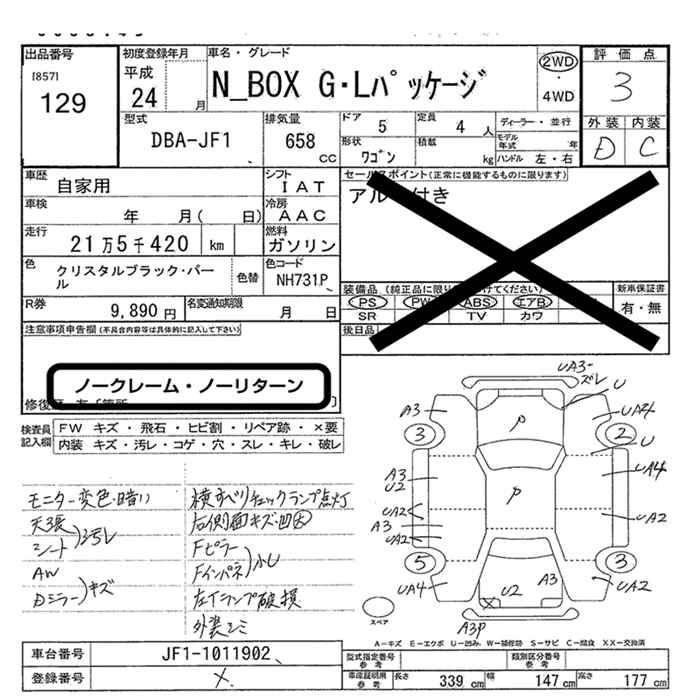 出品番号
[857]
129
初度登録年月
平成
24 月
車名・グレード
N_BOX G・Lパッケージ
2WD
4WD
評価点
3
外装 内装
D C
型式
DBA-JF1
排気量
658 CC
ドア 5
定員 4 人
形状 ワゴン
積載 kg
ディーラー・並行
モデル年式 年
ハンドル 左・右
車歴
自家用
シフト
IAT
車検
年 月( 日)
冷房
AAC
走行
21万5千420 km
燃料
ガソリン
色
クリスタルブラック・パール
色替
色コード
NH731P
R券
9,890円
名変通知期限
月 日
セールスポイント(正常に機能するものに限ります)
アル 付き
装備品(純正品に限り けてください)
PS PW ABS エアB
SR TV カワ
新車保証書
有・無
後日品
注意事項申告欄(不具合内容等は具体的に記入して下さい)
ノークレーム・ノーリターン
検査員記入欄
FW キズ・飛石・ヒビ割・リペア跡・×要
内装 キズ・汚レ・コゲ・穴・スレ・キレ・破レ
モニター変色・暗い
天張
シート
汚レ
AW
Dミラー
キズ
横すべりチェックランプ点灯
右側面キズ・凹大
Fピラー
Fインパネ
左Tランプ破損
外装シミ
UA3-
ズレ
U
A3
UA2
3
2
U
P
P
A3
U2
UA4
UA2
A3
UA2
UA2
5
3
UA4
U2
A3
UA2
A3P
スペア
A-キズ E-エクボ U-凹み W-補修跡 S-サビ C-腐食 XX-交換済
車台番号
JF1-1011902
登録番号
×
型式指定番号 参考
類別区分番号 参考
車庫証明用 参考
長さ 339 cm
幅 147 cm
高さ 177 cm